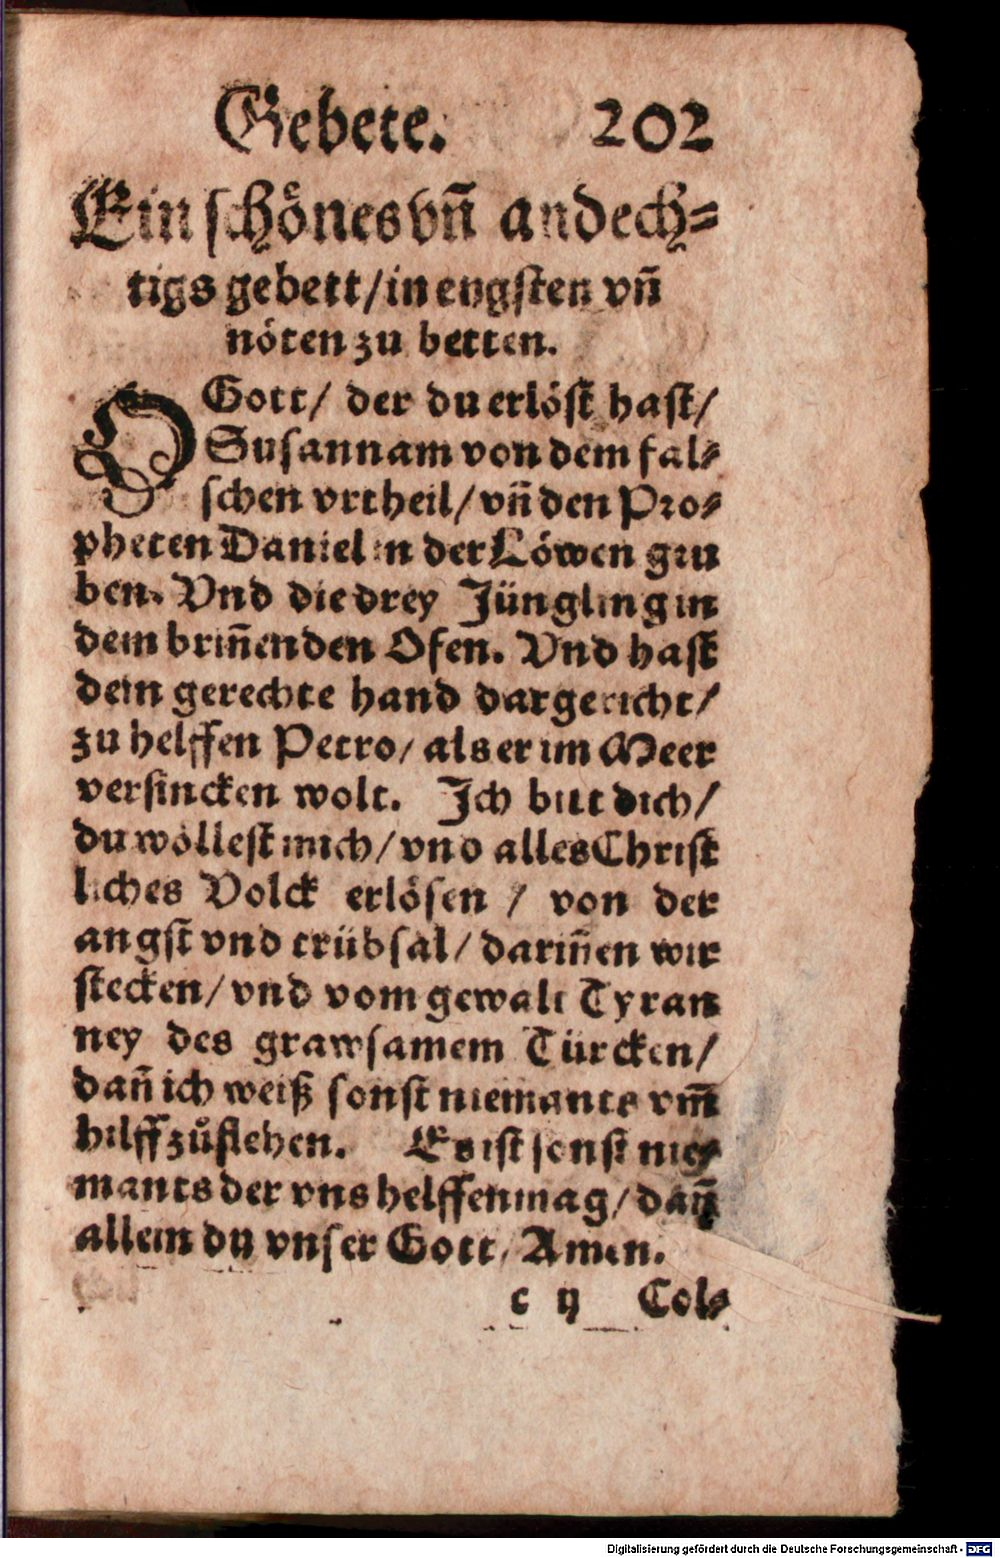 Gebete. 202
Ein schönes vñ andech-
tigs gebett/in engsten vñ
nöten zu betten.
O Gott/ der du erlöst hast/
Susannam von dem fal-
schen vrtheil/vñ den Pro-
pheten Daniel in der Löwen gru
ben. Vnd die drey Jüngling in
dem briñenden Ofen. Vnd hast
dein gerechte hand dargericht/
zu helffen Petro/ als er im Meer
versincken wolt. Ich bitt dich/
du wöllest mich/vnd alles Christ
liches Volck erlösen / von der
angst vnd trübsal/dariñen wir
stecken/vnd vom gewalt Tyran
ney des grawsamem Türcken/
dañ ich weiß sonst niemants vm̃
hilff zůflehen. Es ist sonst nie-
mants der vns helffen mag/dañ
allein du vnser Gott, Amen.
c ij Col-
Digitalisierung gefördert durch die Deutsche Forschungsgemeinschaft - DFG